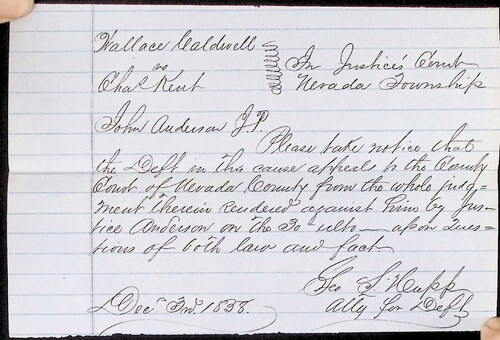 Wallace Caldwell
vs
Chas Kent
In Justices' Court
Nevada Township
John Anderson J.P.
Please take notice that
the Deft in this cause appeals to the County
Court of Nevada County from the whole judg=
ment therein rendered against him by jus=
tice Anderson on the 30 ulto - upon Ques=
tions of both law and fact.
Geo S. Hupp
Atty for Deft
Decr 3rd 1858.